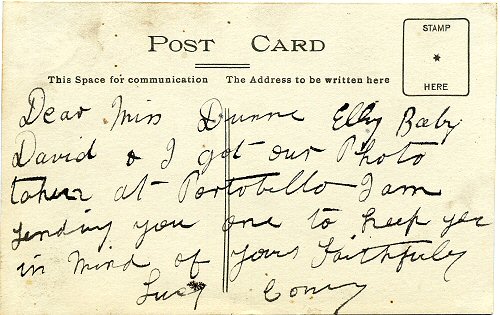 POST CARD
STAMP
HERE
This Space for communication The Address to be written here
Dear Miss Dunne Elly Baby
David & I got our Photo
taken at Portobello I am
sending you one to keep you
in mind of yours faithfuly
Lucy